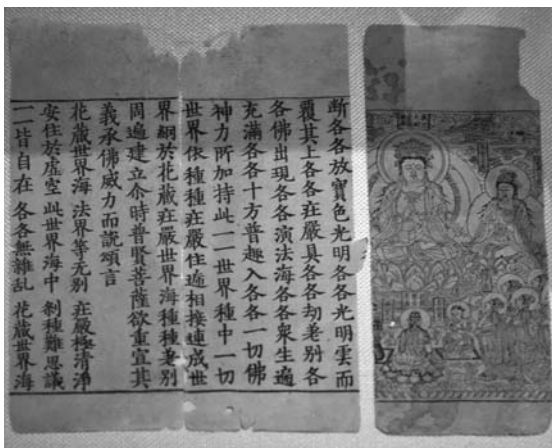 断各各放寶色光明各各光明雲而
覆其上各各莊嚴具各各劫差别各
各佛出現各各演法海各各衆生遍
充滿各各十方普趣入各各一切佛
神力所加持此一一世界種中一切
世界依種種莊嚴住遞相接連成世
界網於花藏莊嚴世界海種種差别
周遍建立尒時普賢菩薩欲重宣其
義承佛威力而説頌言
花藏世界海 法界等无别 莊嚴極清淨
安住於虛空 此世界海中 刹種難思議
一一皆自在 各各無雜乱 花藏世界海